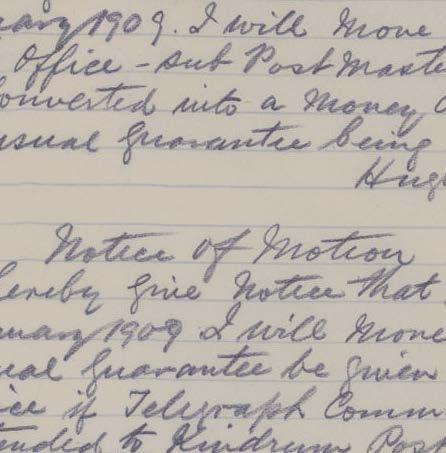 uary 1909. I will move
Office - Sub Post Maste
Converted into a Money O
usual Guarantee being
Hug
Notice of Motion
hereby give Notice that
nuary 1909 I will move
ual Guarantee be given
ice if Telegraph Comm
tended to Kindrum Post